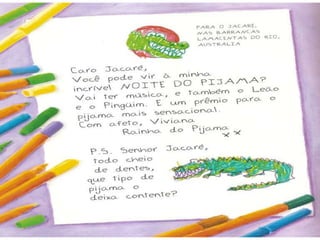 PARA O JACARÉ,
NAS BARRANCAS
LAMACENTAS DO RIO,
AUSTRÁLIA
Caro Jacaré,
Você pode vir à minha
incrível NOITE DO PIJAMA?
Vai ter música, e também o Leão
e o Pinguim. E um prêmio para o
pijama mais sensacional.
Com afeto, Viviana
Rainha do Pijama
x x
P.S. Senhor Jacaré,
todo cheio
de dentes,
que tipo de
pijama o
deixa contente?